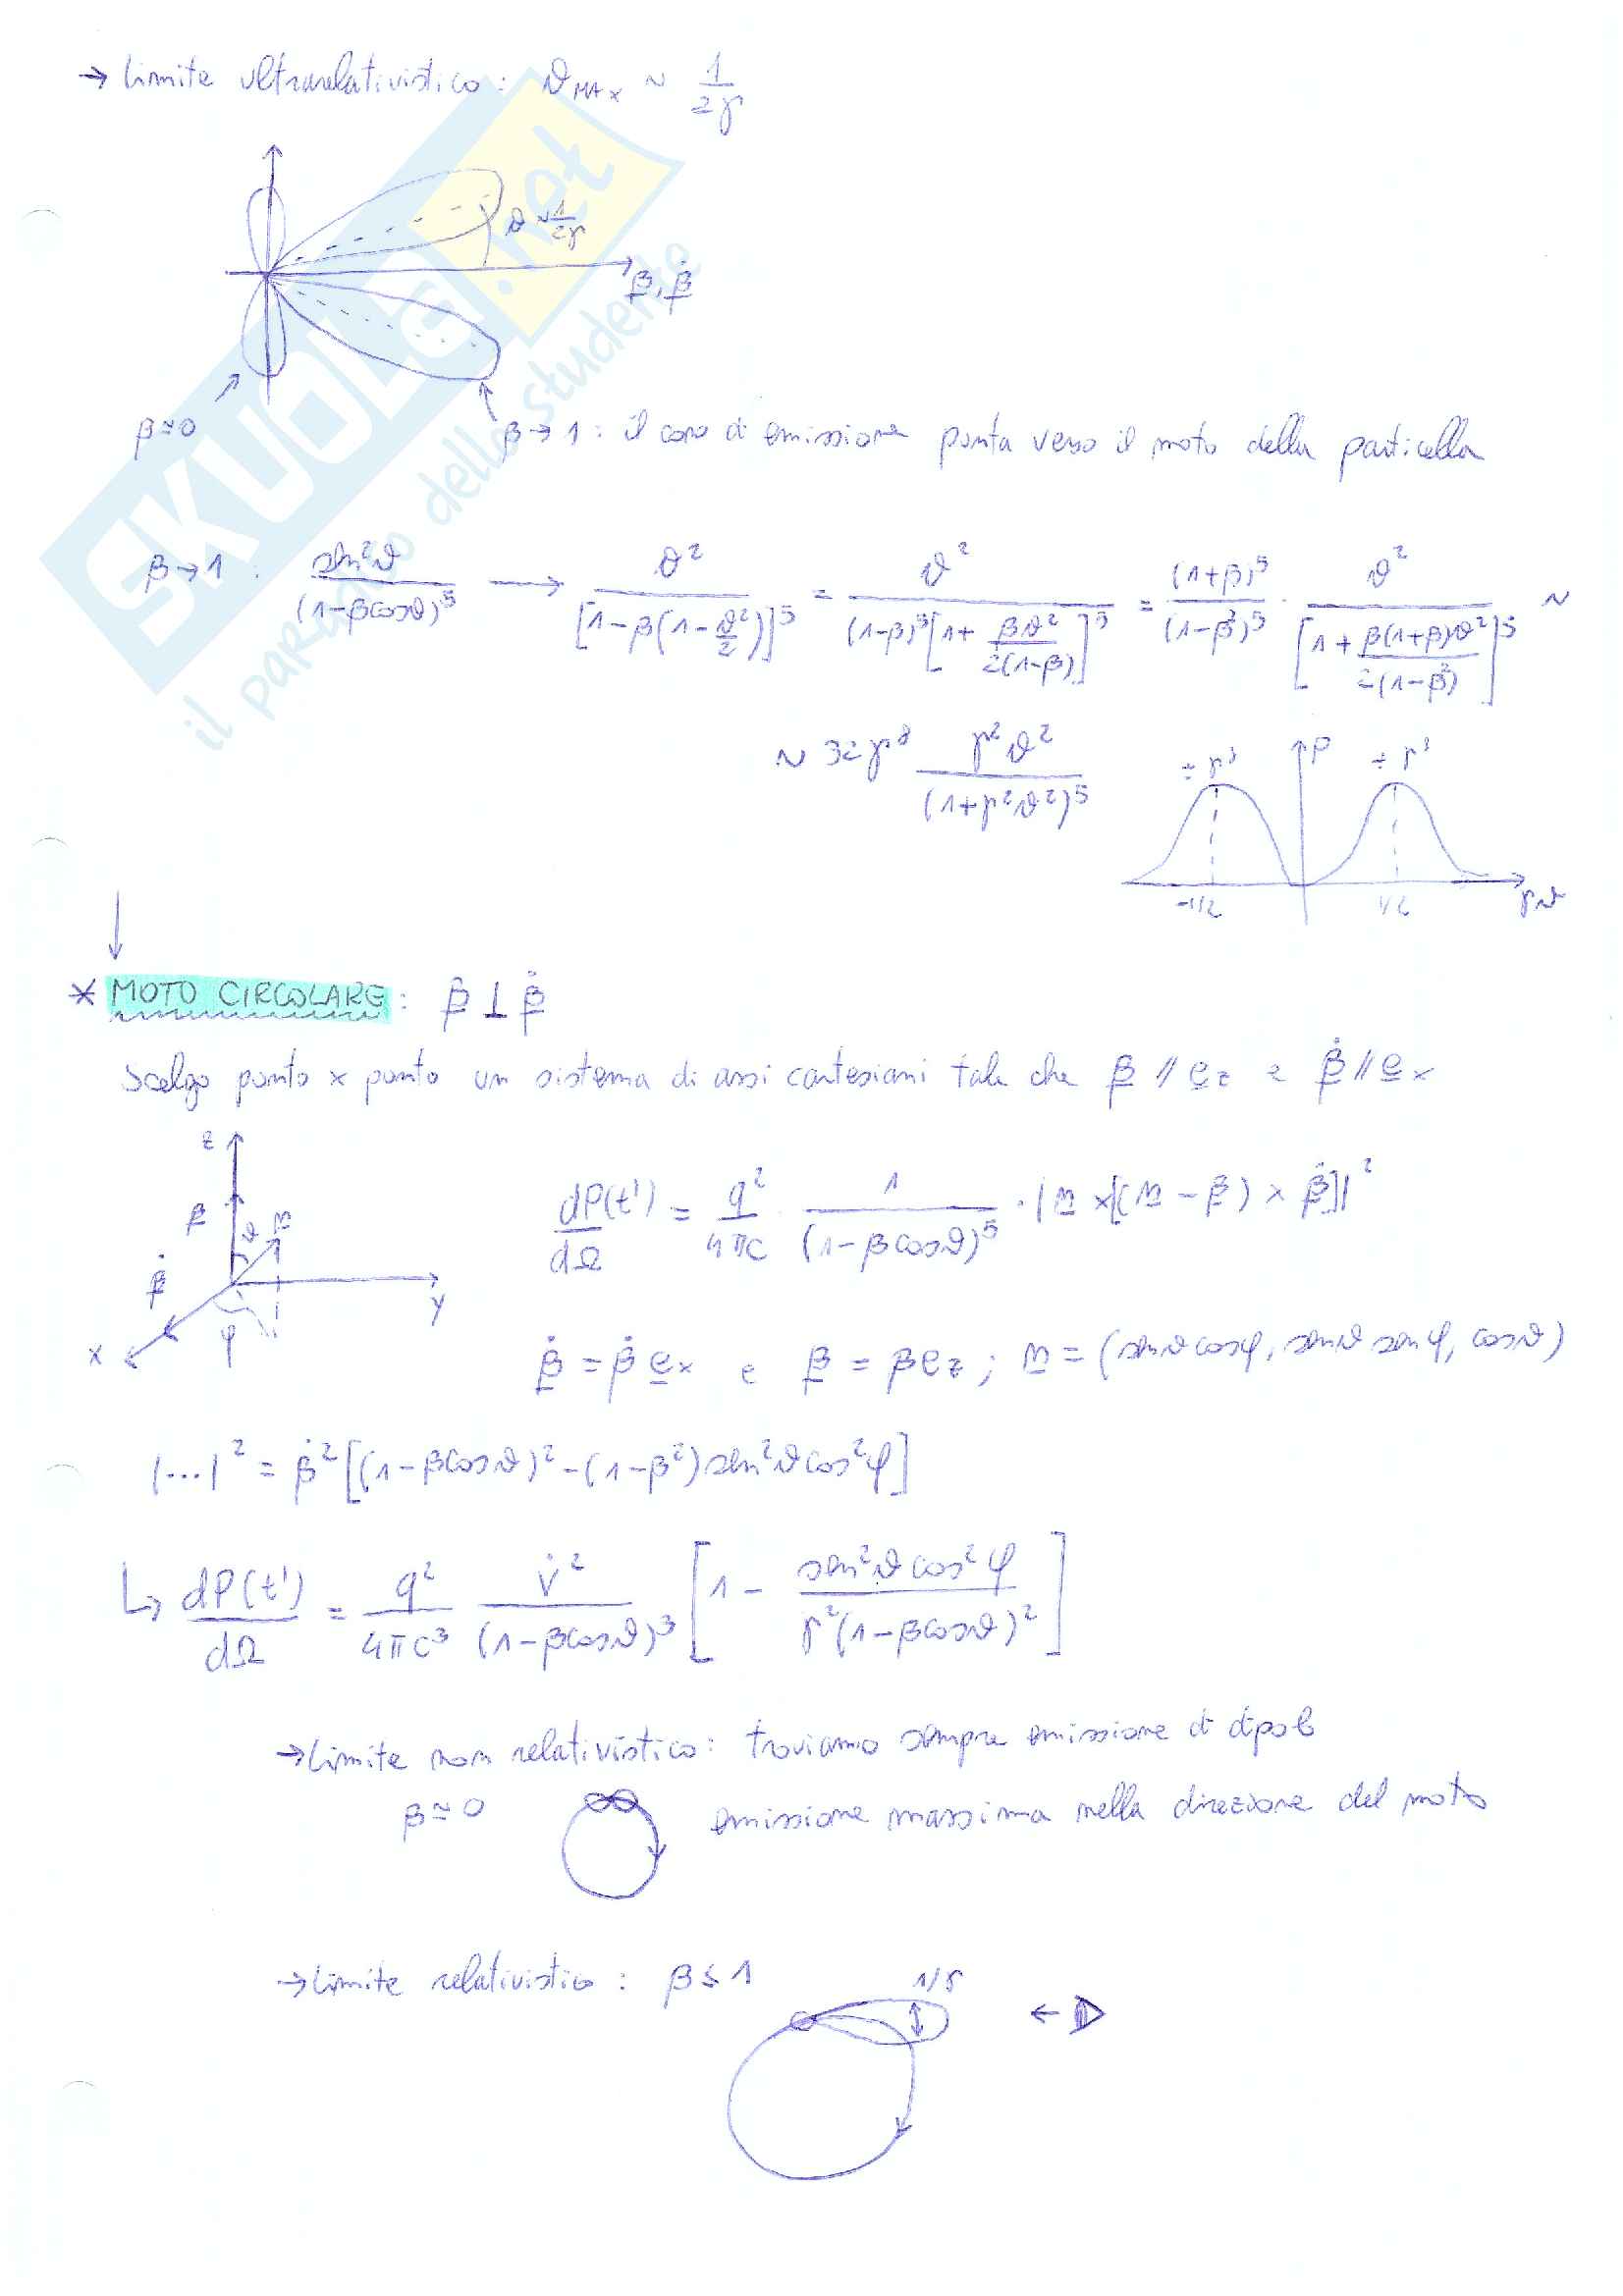 → Limite ultrarelativistico: ϑ_MAX ~ 1/2γ
ϑ ~ 1/2γ
β, β̇
β≃0
β→1: il cono di emissione punta verso il moto della particella
β→1: sen²ϑ/(1-βcosϑ)⁵ → ϑ²/[1-β(1-ϑ²/2)]⁵ = ϑ²/((1-β)⁵[1+ βϑ²/2(1-β)]⁵) = (1+β)⁵/(1-β²)⁵ · ϑ²/[1+ β(1+β)ϑ²/2(1-β²)]⁵ ~
~ 32γ⁸ γ²ϑ²/(1+γ²ϑ²)⁵
P
-1/2 1/2 γϑ
* MOTO CIRCOLARE: β ⊥ β̇
Scelgo punto x punto un sistema di assi cartesiani tale che β // e_z e β̇ // e_x
z
β ϑ n
β̇
y
x φ
dP(t')/dΩ = q²/4πc · 1/(1-βcosϑ)⁵ · |n x[(n-β) x β̇]|²
β̇ = β̇ e_x e β = βe_z; n = (senϑcosφ, senϑ senφ, cosϑ)
|...|² = β̇²[(1-βcosϑ)²-(1-β²)sen²ϑcos²φ]
↳ dP(t')/dΩ = q²/4πc³ v̇²/(1-βcosϑ)³ [1 - sen²ϑcos²φ/γ²(1-βcosϑ)²]
→ Limite non relativistico: troviamo sempre emissione di dipolo
β≃0 emissione massima nella direzione del moto
→ Limite relativistico: β≲1
1/γ
SKUOLA.net
il paradiso dello studente